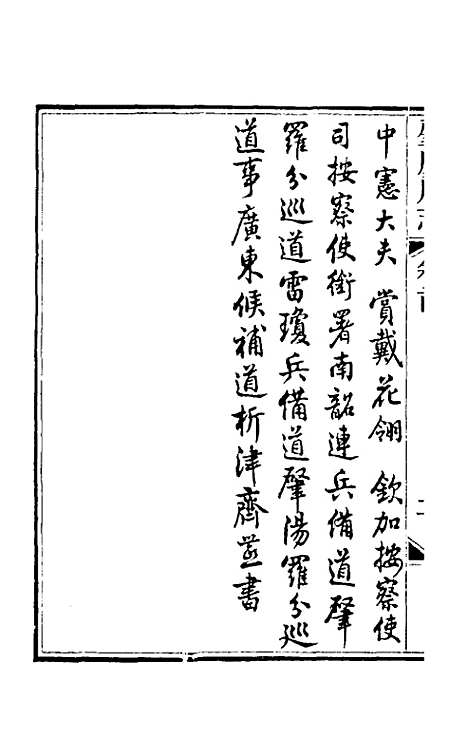 中憲大夫 賞戴花翎 欽加按察使
司按察使銜署南韶連兵備道肇
羅分巡道雷瓊兵備道肇陽羅分巡
道事廣東候補道析津齊世書